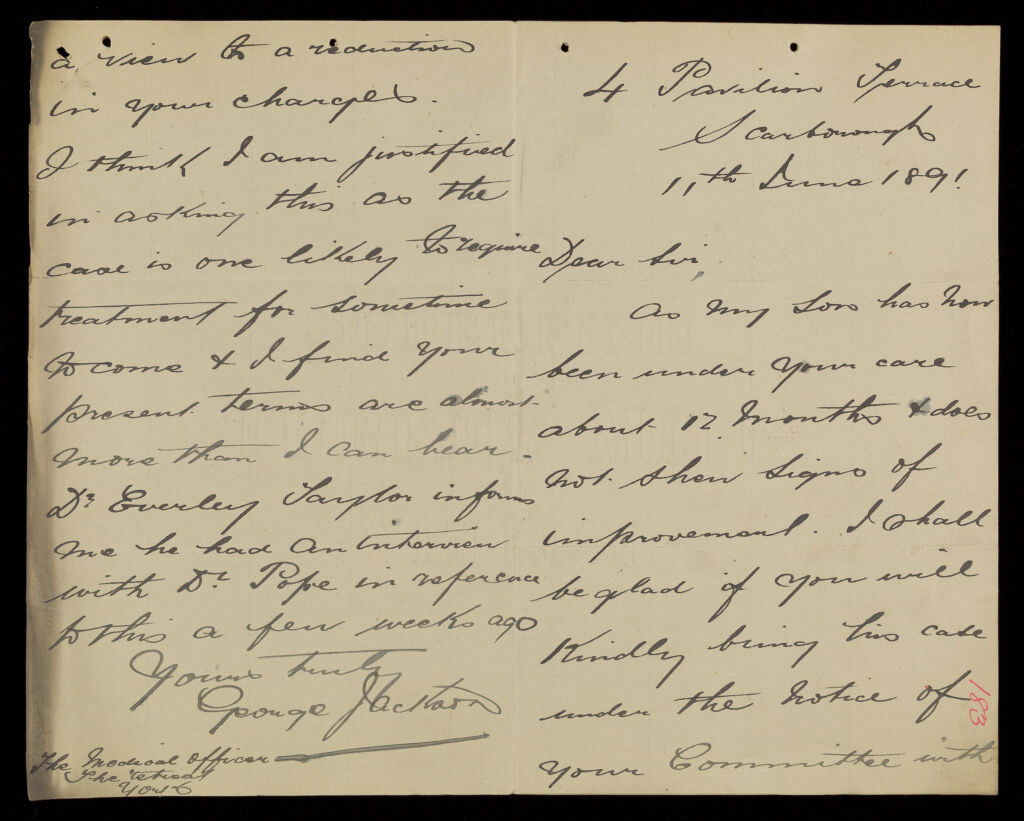 4 Pavilion Terrace
Scarborough
11th June 1891.
Dear Sir,
As my Son has now
been under your care
about 12 Months & does
not shew signs of
improvement. I shall
be glad if you will
Kindly bring his case
under the notice of
your Committee with
183
a view to a reduction
in your charges.
I think I am justified
in asking this as the
case is one likely to require
treatment for sometime
to come & I find your
present terms are almost
more than I can bear.
Dr Everley Taylor informs
me he had an interview
with Dr Pope in reference
to this a few weeks ago
Yours truly
George Jackson
The Medical Officer
The Retreat
York